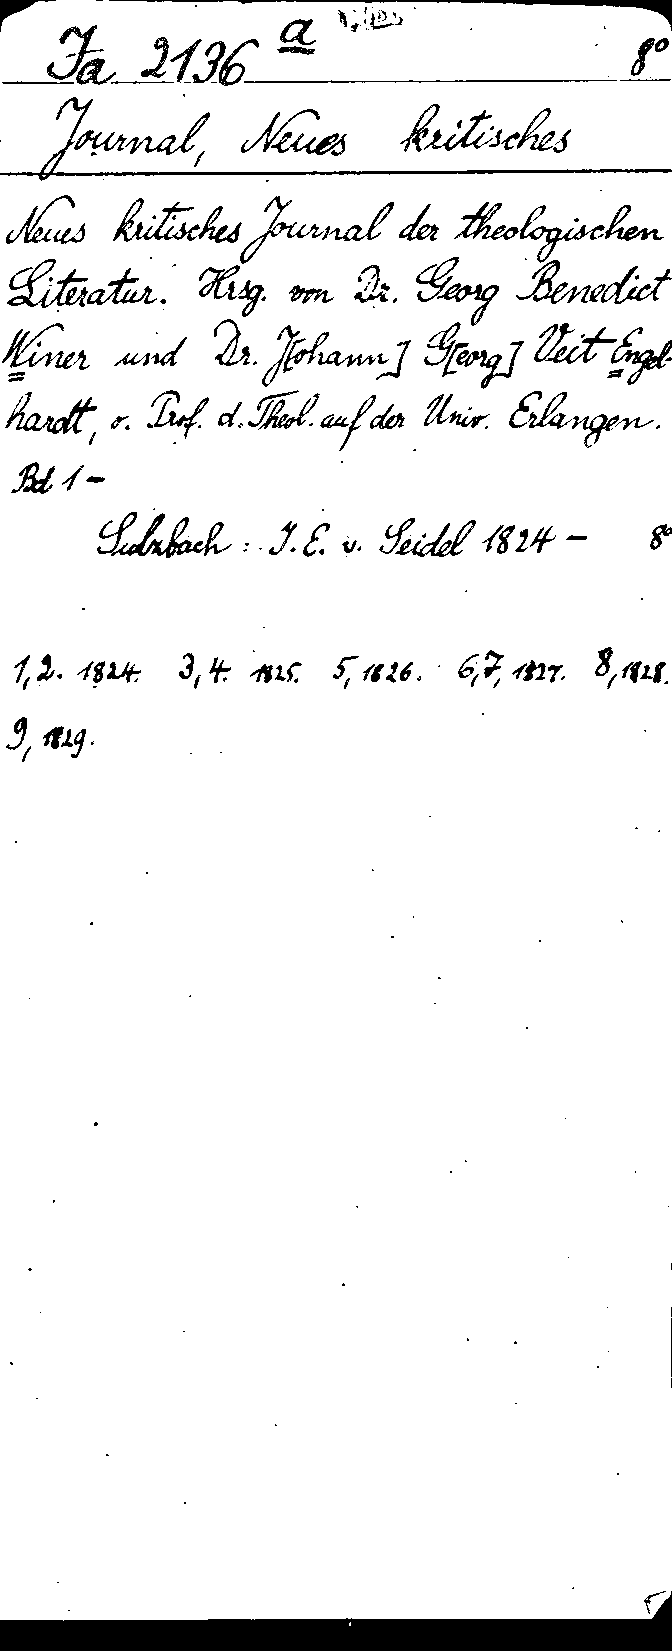 Ja 2136 a 8°
Journal, Neues kritisches
Neues kritisches Journal der theologischen
Literatur. Hrsg. von Dr. Georg Benedict
Winer und Dr. J[ohann] G[eorg] Veit Engel-
hardt, o. Prof. d. Theol. auf der Univ. Erlangen.
Bd 1 –
Sulzbach: J. E. v. Seidel 1824 – 8°
1,2. 1824. 3,4. 1825. 5, 1826. 6,7, 1827. 8, 1828.
9, 1829.